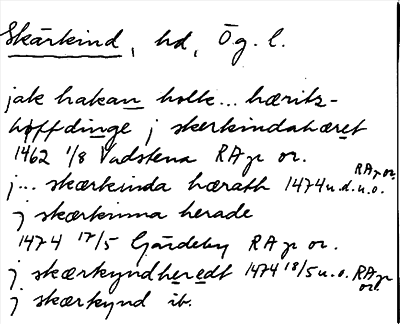 Skärkind, hd, Ög. l.
jak hakan holte... hæritz-
höffdinge j skærkindahæret
1462 1/8 Vadstena RAp or.
j... skærkinda hærath 1474 u.d.u.o. RAp or.
j skærkinna herade
1474 17/5 Gärdeby RAp or.
j skærkyndheredt 1474 18/5 u.o. RAp or.
j skærkynd ib.